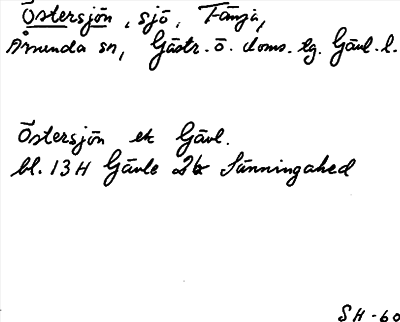 Östersjön, sjö, Tänja,
Åmunda sn, Gästr. ö. doms. tg. Gävl. l.
Östersjön ek Gävl.
bl. 13 H Gävle 2b Sänningahed
SH-60